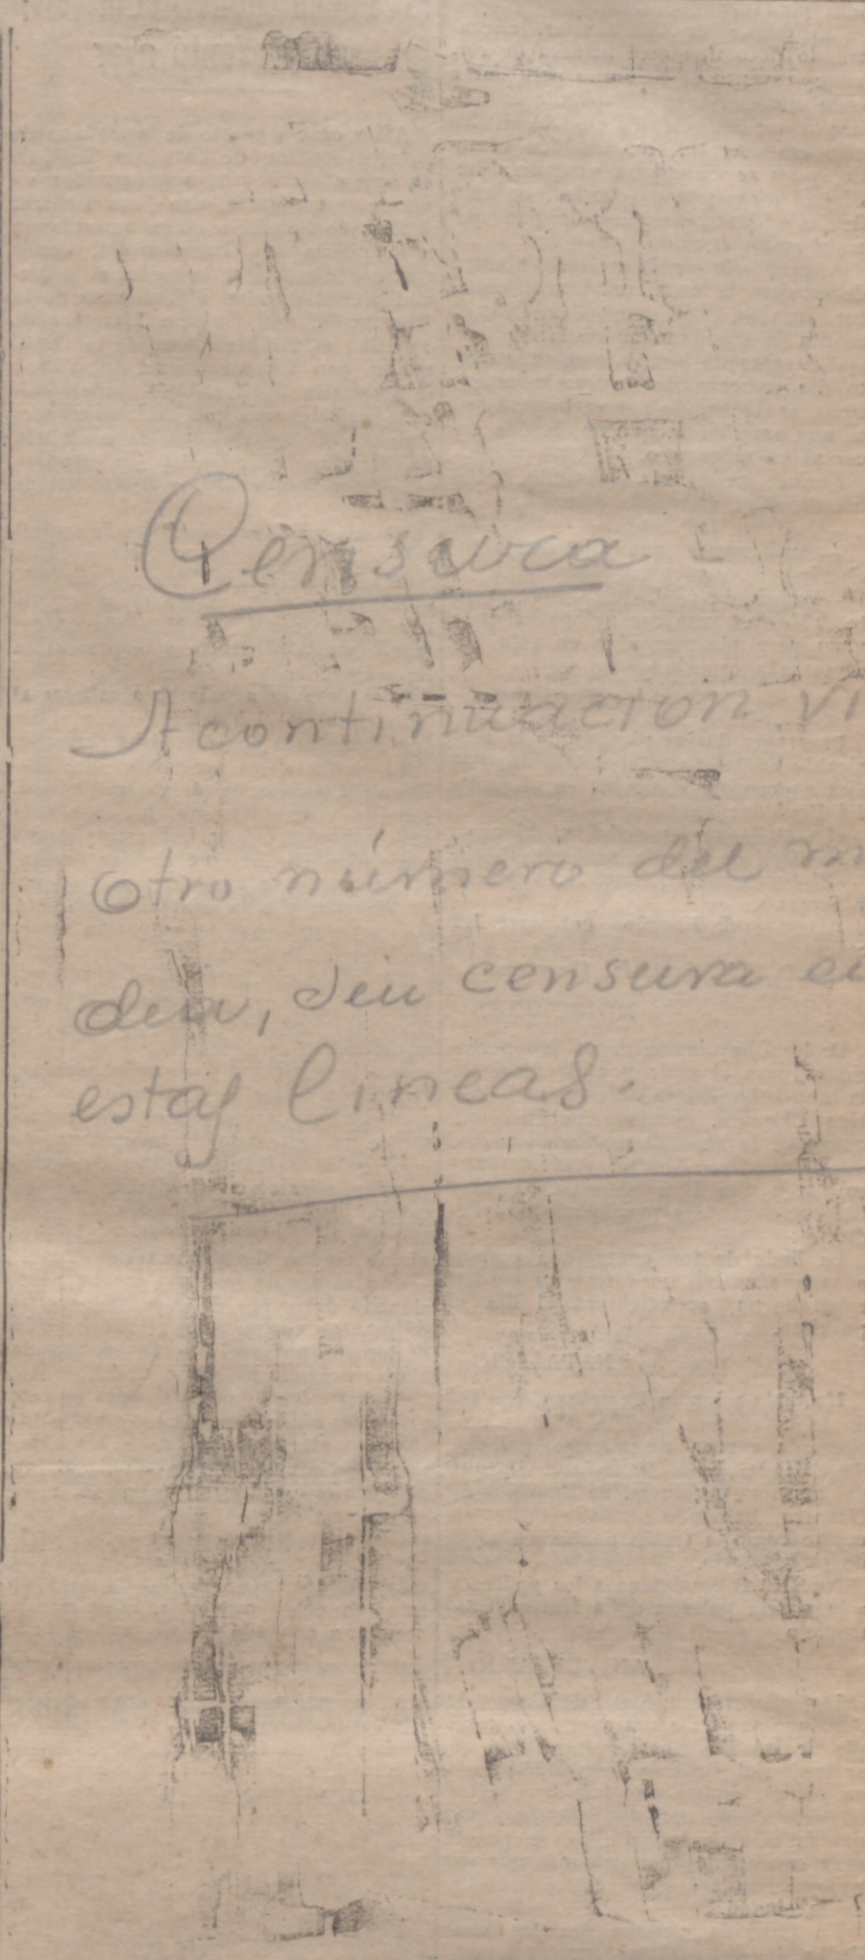 Censura
A continuación vi
otro número del m
dia, sin censura en
estas lineas.